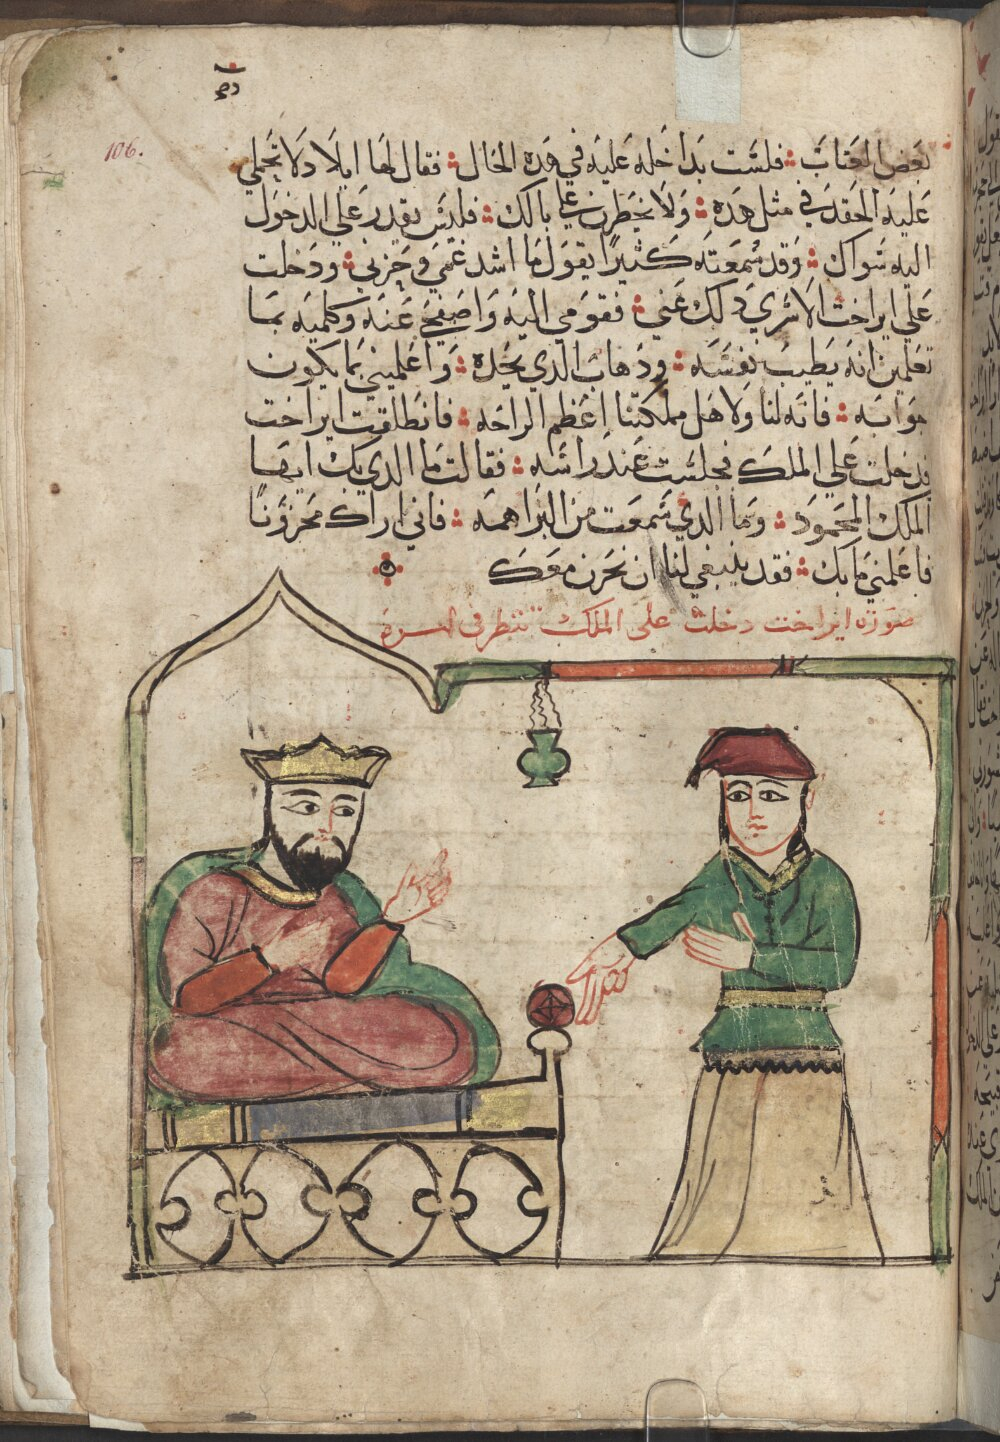 106.
بعض العتاب فلست بداخله عليه في هذه الحال فقال لها ايلاد لا تحملي
عليه الحقد في مثل هذه ولا يخطرن علي بالك فليس يقدر علي الدخول
اليه سواك وقد سمعته كثيرًا يقول ما اشتد غمي وحزني ودخلت
علي ايراخت الا سري ذلك عني فقومي اليه واصفحي عنه وكلميه بما
تعلمين انه يطيب نفسه وذهاب الذي يجده واعلميني بما يكون
جوابه فانه لنا ولاهل مملكتنا اعظم الراحه فانطلقت ايراخت
فدخلت علي الملك فجلست عند راسه فقالت ما الذي بك ايها
الملك المحمود وما الذي سمعت من البراهمه فاني اراك محزونًا
فاعلمني ما بك فقد ينبغي لنا ان نحزن معك ه
صورة ايراخت دخلت على الملك تنظر في